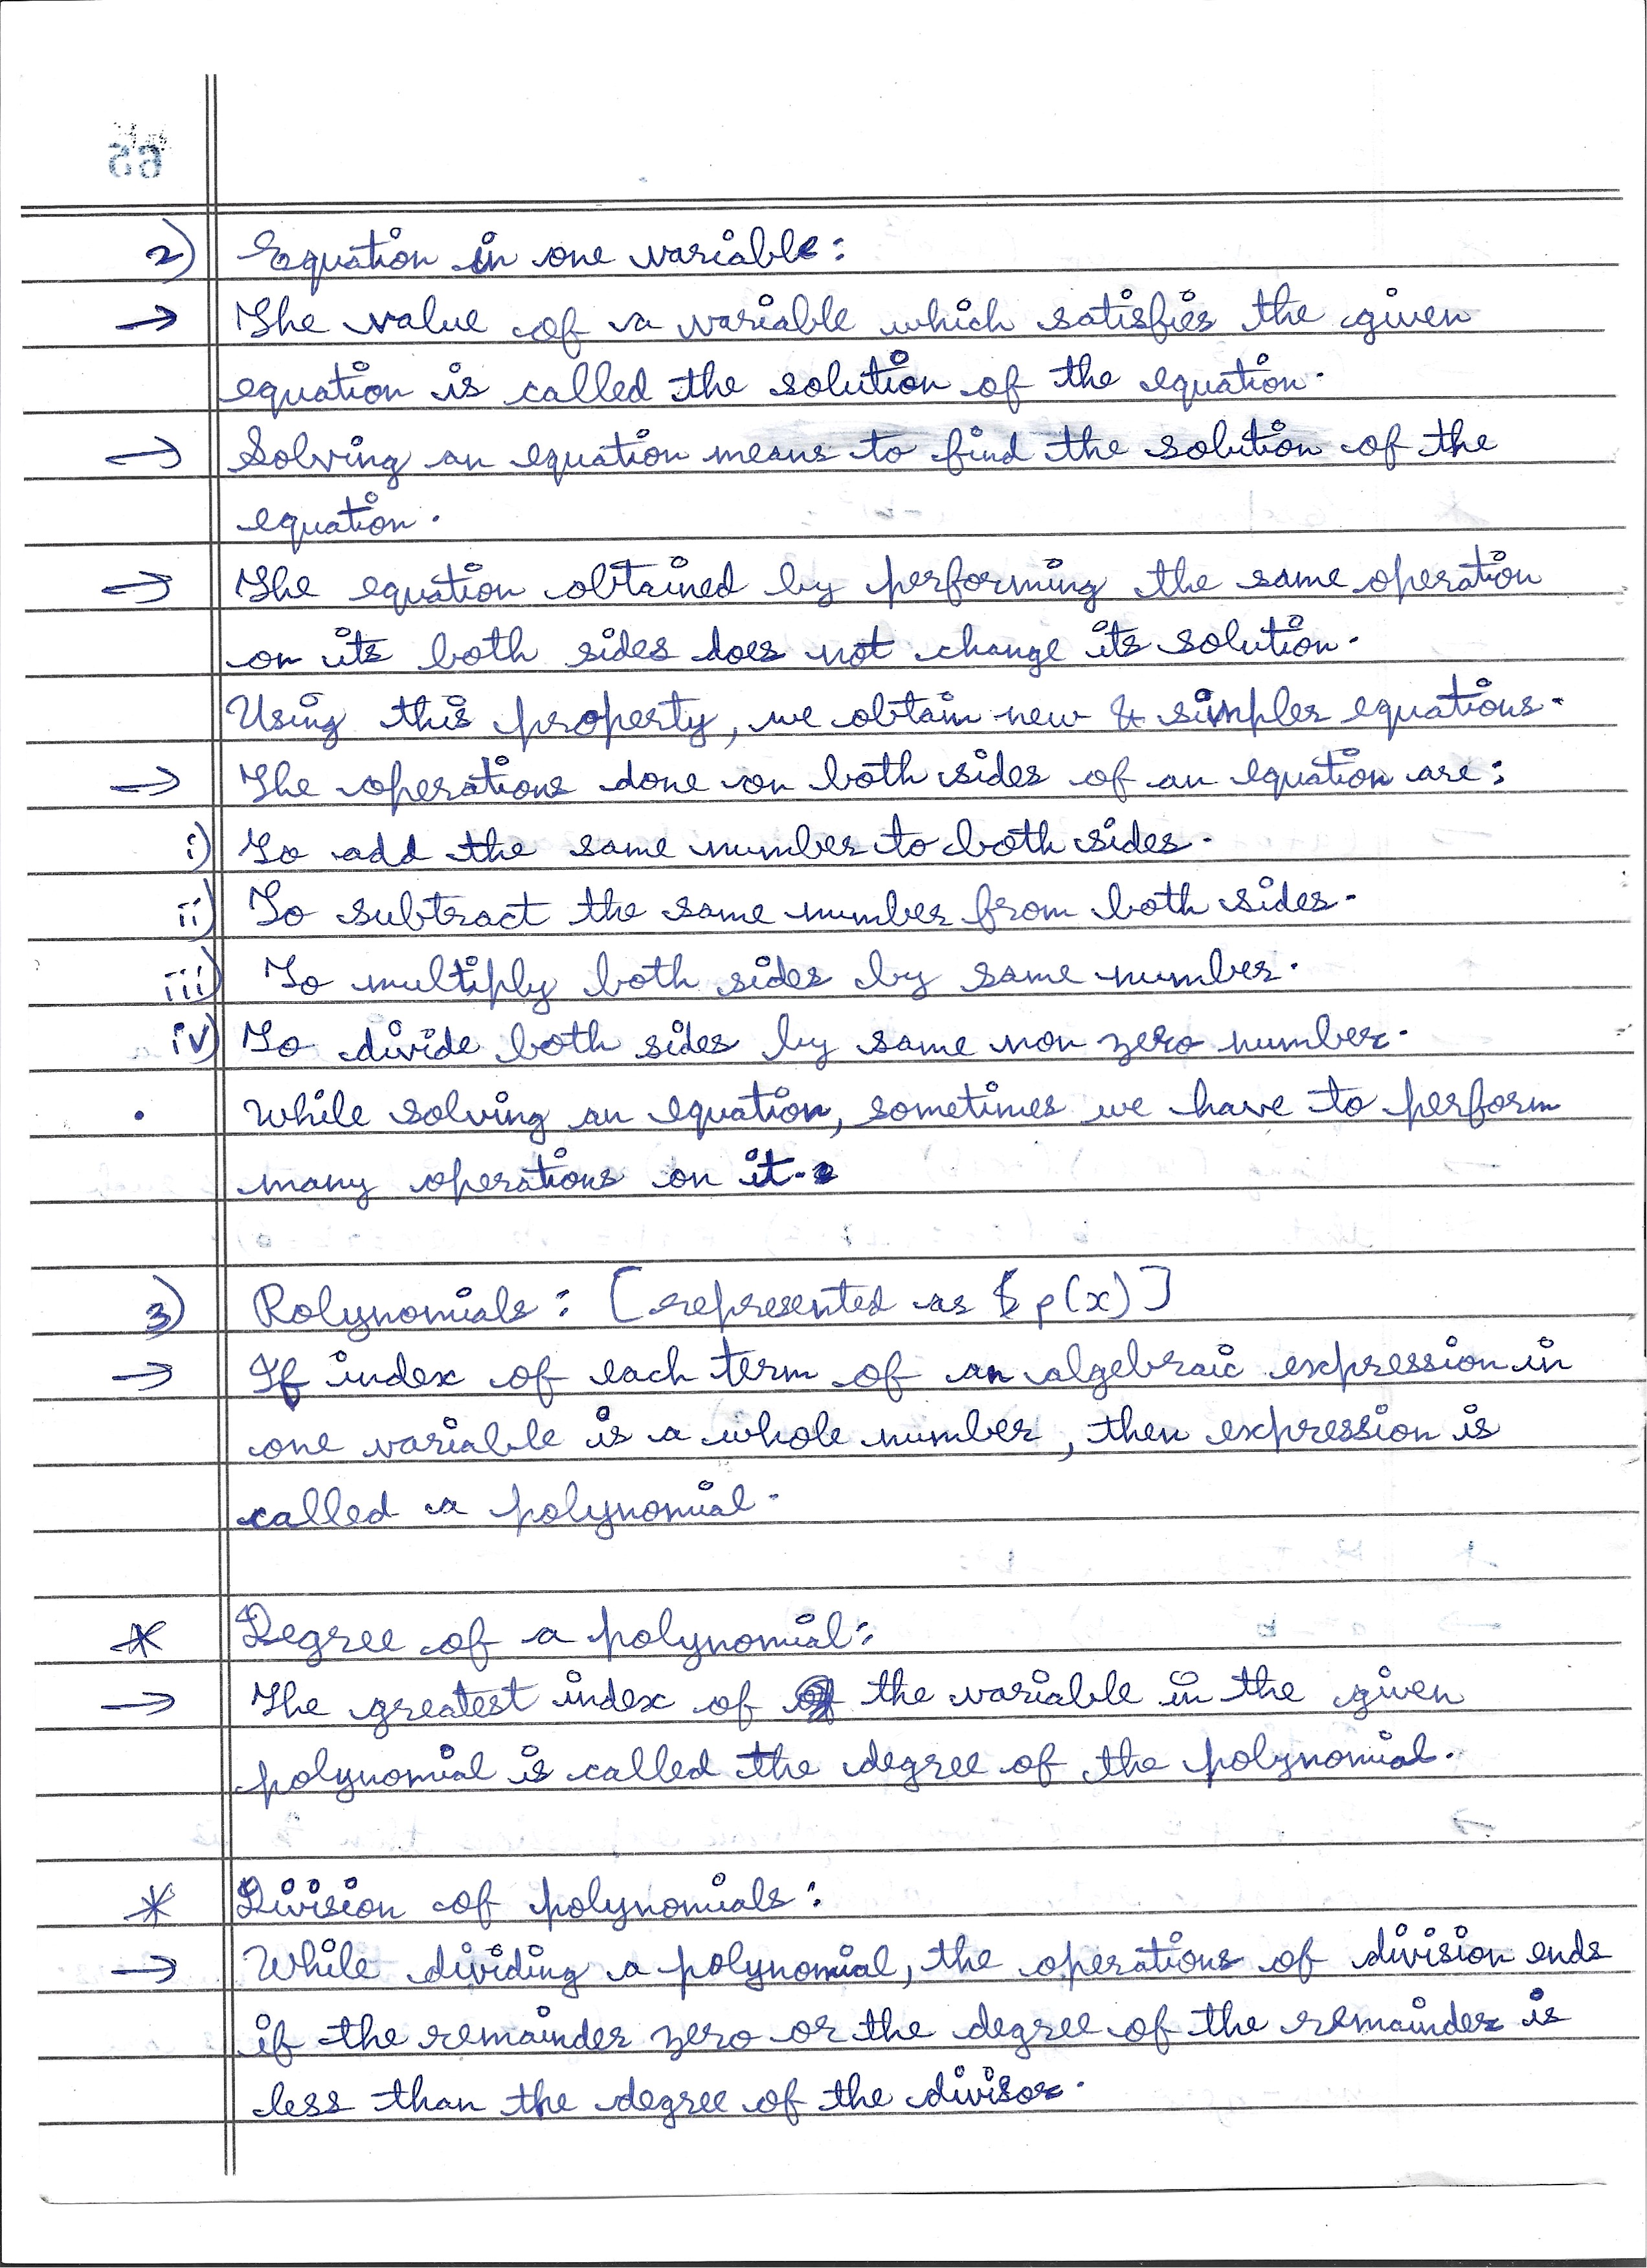 65
2) Equation in one variable:
→ The value of a variable which satisfies the given
equation is called the solution of the equation.
→ Solving an equation means to find the solution of the
equation.
→ The equation obtained by performing the same operation
on its both sides does not change its solution.
Using this property, we obtain new & simpler equations.
→ The operations done on both sides of an equation are:
i) To add the same number to both sides.
ii) To subtract the same number from both sides.
iii) To multiply both sides by same number.
iv) To divide both sides by same non zero number.
• While solving an equation, sometimes we have to perform
many operations on it.
3) Polynomials: [represented as p(x)]
→ If index of each term of an algebraic expression in
one variable is a whole number, then expression is
called a polynomial.
* Degree of a polynomial:
→ The greatest index of the variable in the given
polynomial is called the degree of the polynomial.
* Division of polynomials:
→ While dividing a polynomial, the operations of division ends
if the remainder zero or the degree of the remainder is
less than the degree of the divisor.